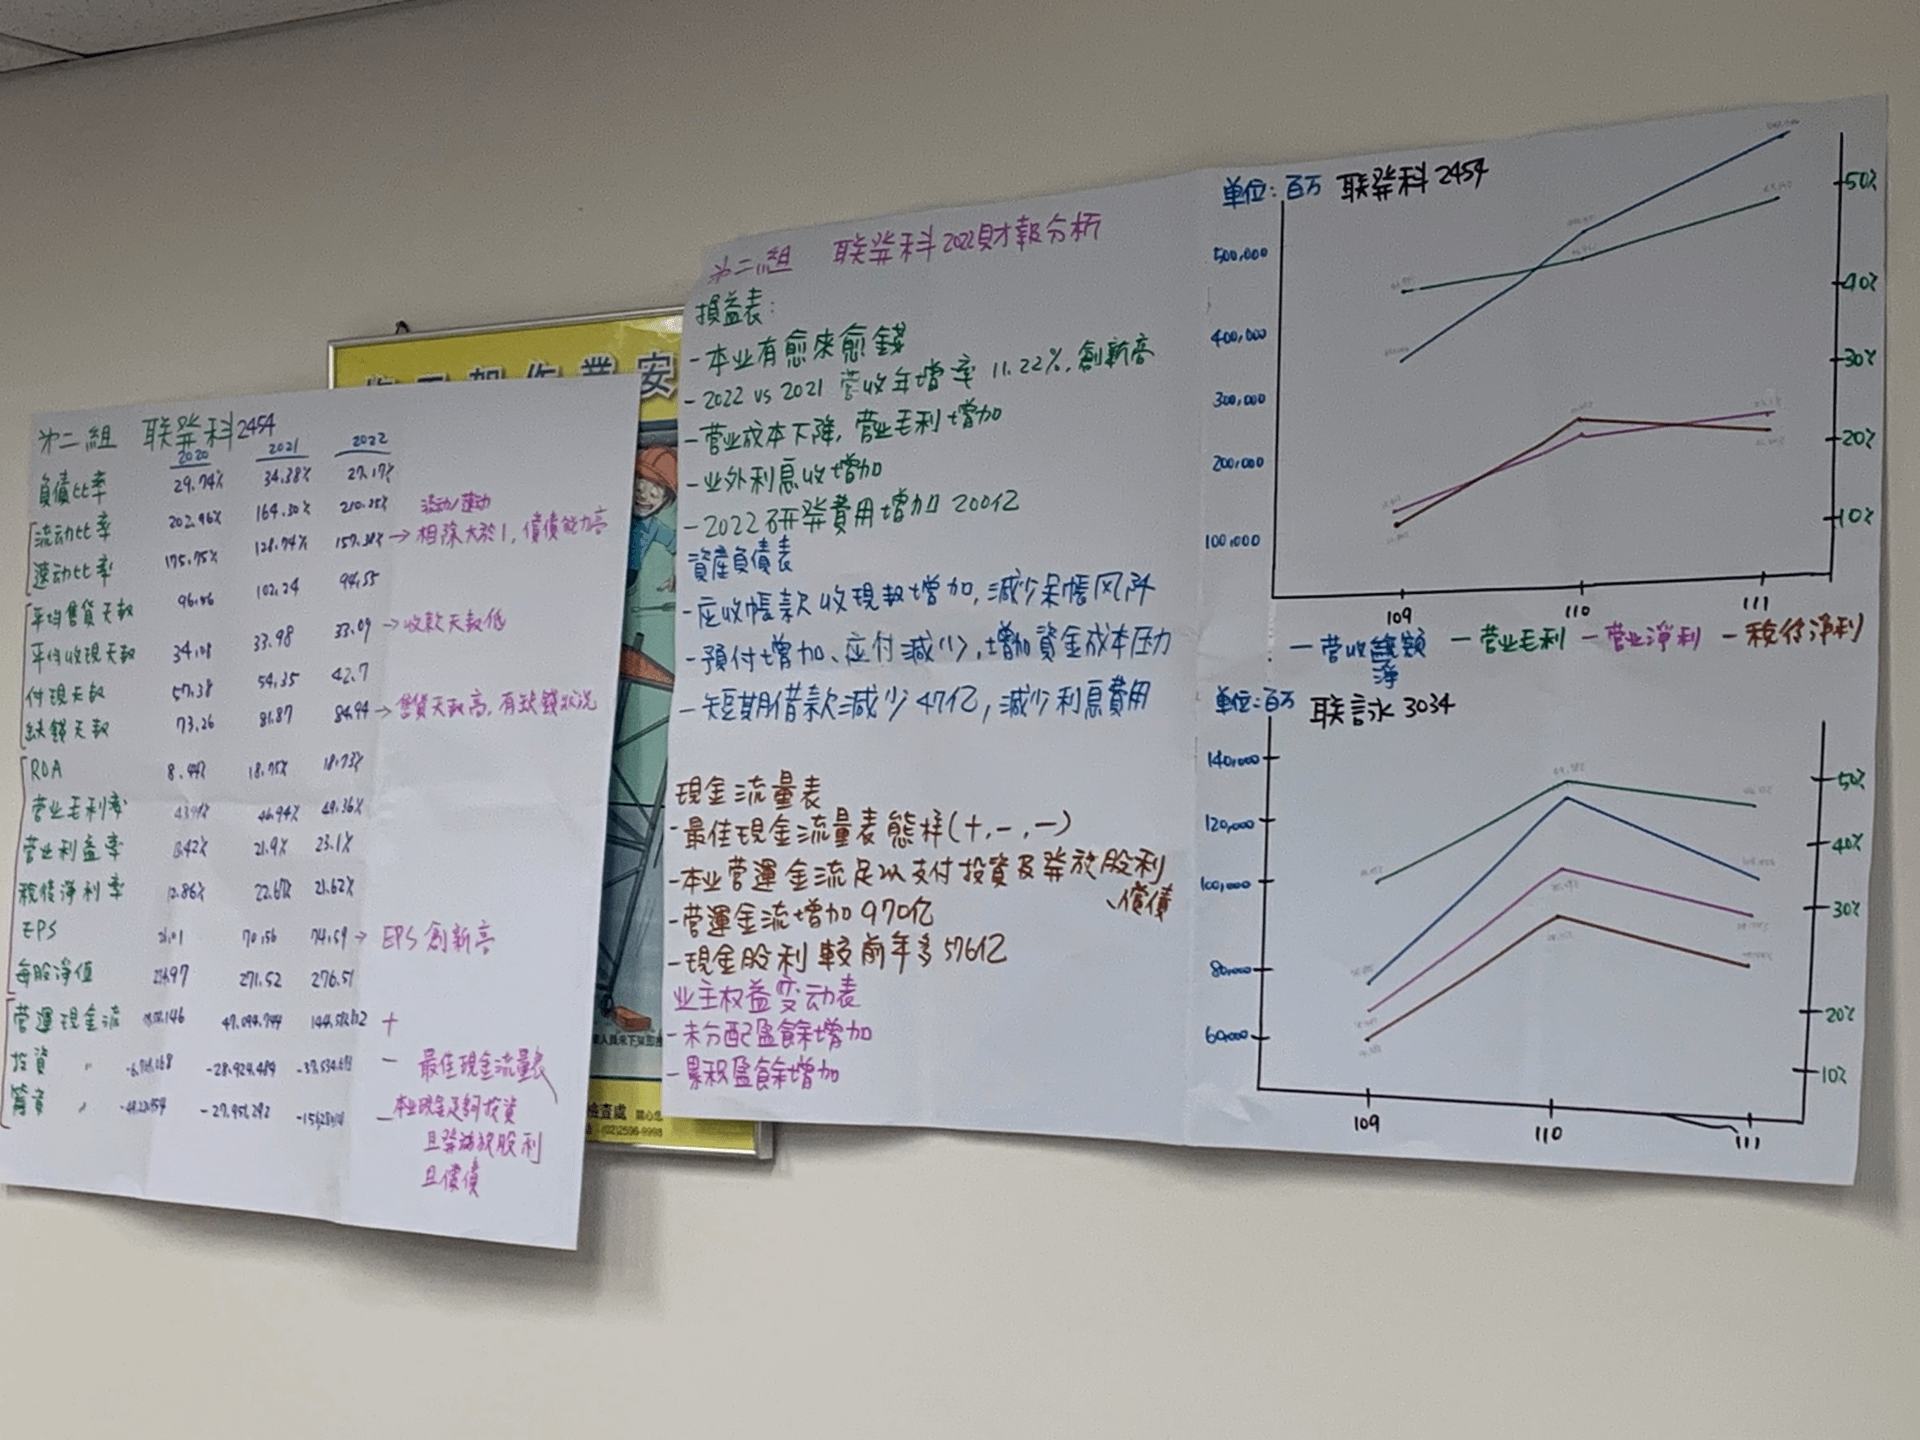 第二組 联発科2454
2020 2021 2022
負債比率 29.74% 34.38% 27.17%
流动比率 202.96% 164.30% 210.35% 流动/速动
速动比率 175.75% 128.74% 157.38% → 相除大於1,償債能力高
平均售貨天数 96.56 102.24 94.55
平均收現天数 34.08 33.98 33.09 → 收款天数低
付現天数 57.38 54.35 42.7
缺錢天数 73.26 81.87 84.94 → 售貨天数高,有缺錢状况
ROA 8.44% 18.75% 18.73%
营业毛利率 43.94% 46.94% 49.36%
营业利益率 13.42% 21.9% 23.1%
税後淨利率 12.86% 22.67% 21.62%
EPS 26.01 70.56 74.59 → EPS 創新高
每股淨值 271.52 276.51
营運現金流 +
投資 〃 -28,924,484 — 最佳現金流量表
籌資 〃 -27,951,292 — 本业現金足夠投資
且発放股利
且償債
第二組 联発科2022財報分析
損益表:
- 本业有愈來愈錢
- 2022 vs 2021 营收年增率 11.22%,創新高
- 营业成本下降,营业毛利增加
- 业外利息收增加
- 2022研発費用增加 200亿
資產負債表
- 应收帳款收現数增加,減少呆帳风险
- 預付增加、应付減少,增加資金成本压力
- 短期借款減少47亿,減少利息費用
現金流量表
- 最佳現金流量表態樣(+,-,-)
- 本业营運金流足以支付投資及発放股利
、償債
- 营運金流增加970亿
- 現金股利較前年多576亿
业主权益变动表
- 未分配盈餘增加
- 累积盈餘增加
單位:百万 联発科2454
50%
500,000
40%
400,000
30%
300,000
20%
200,000
10%
100,000
109 110 111
— 营收淨額 — 营业毛利 — 营业淨利 — 税後淨利
單位:百万 联詠3034
140,000 50%
120,000 40%
100,000 30%
80,000 20%
60,000 10%
109 110 111
(02)2596-9998